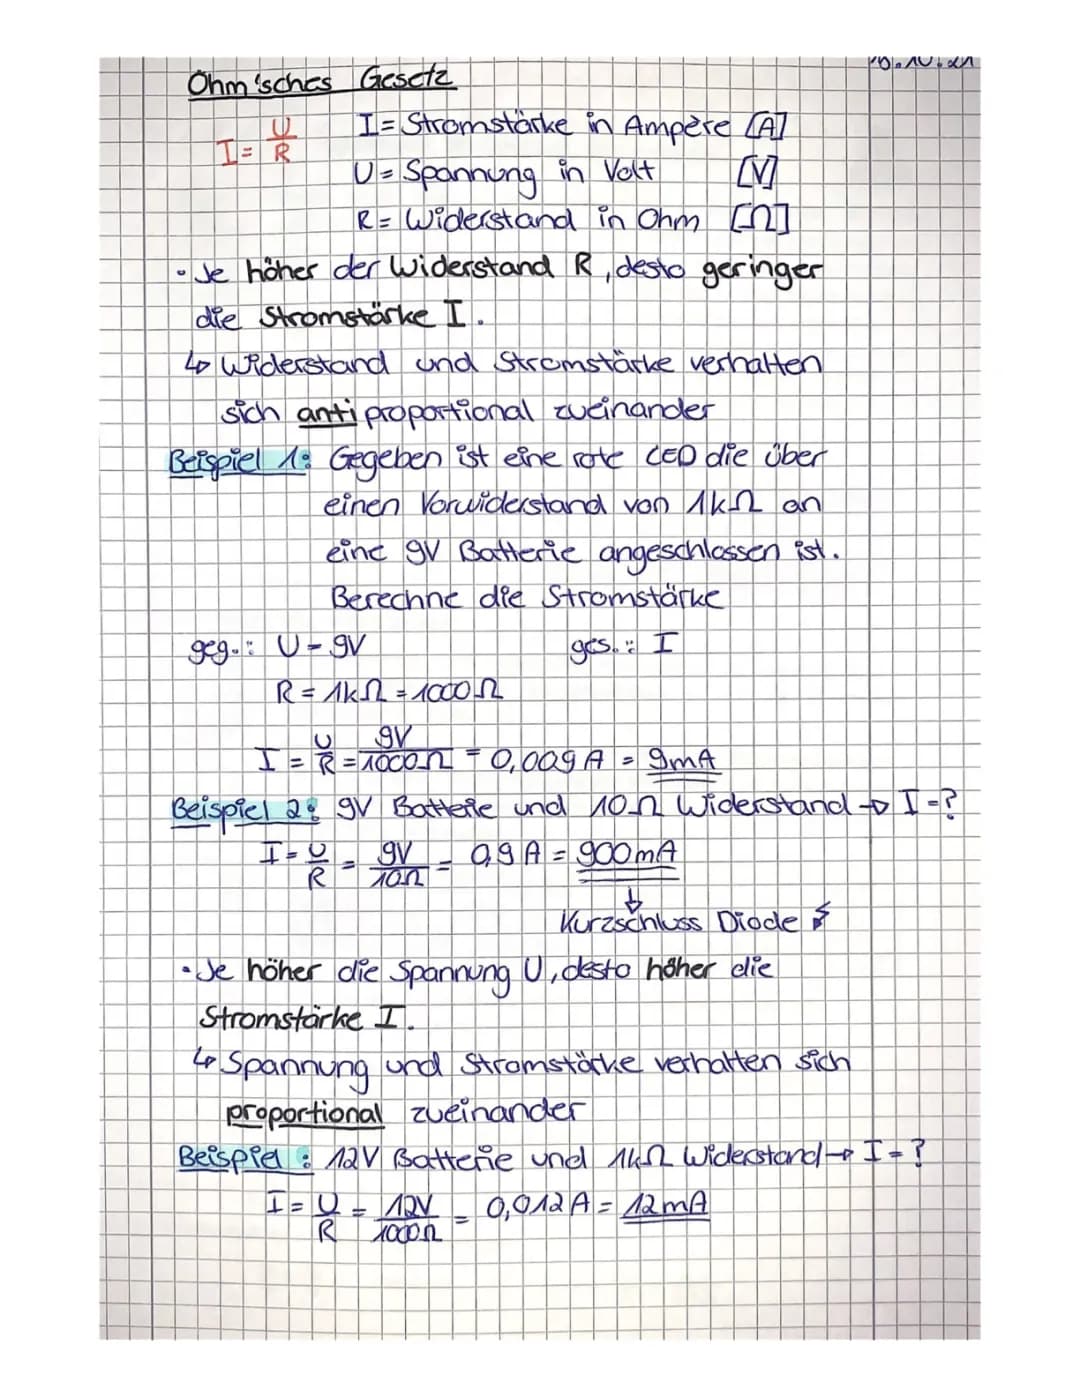 10.10.21
Ohm'sches Gesetz
I = U/R I = Stromstärke in Ampère [A]
U = Spannung in Volt [V]
R = Widerstand in Ohm [Ω]
• Je höher der Widerstand R, desto geringer
die Stromstärke I.
↳ Widerstand und Stromstärke verhalten
sich antiproportional zueinander
Beispiel 1: Gegeben ist eine rote LED die über
einen Vorwiderstand von 1kΩ an
eine 9V Batterie angeschlossen ist.
Berechne die Stromstärke
geg.: U = 9V ges.: I
R = 1kΩ = 1000Ω
I = U/R = 9V/1000Ω = 0,009A = 9mA
Beispiel 2: 9V Batterie und 10Ω Widerstand → I = ?
I = U/R = 9V/10Ω = 0,9A = 900mA
↓
Kurzschluss Diode ↯
• Je höher die Spannung U, desto höher die
Stromstärke I.
↳ Spannung und Stromstärke verhalten sich
proportional zueinander
Beispiel: 12V Batterie und 1kΩ Widerstand → I = ?
I = U/R = 12V/1000Ω = 0,012A = 12mA